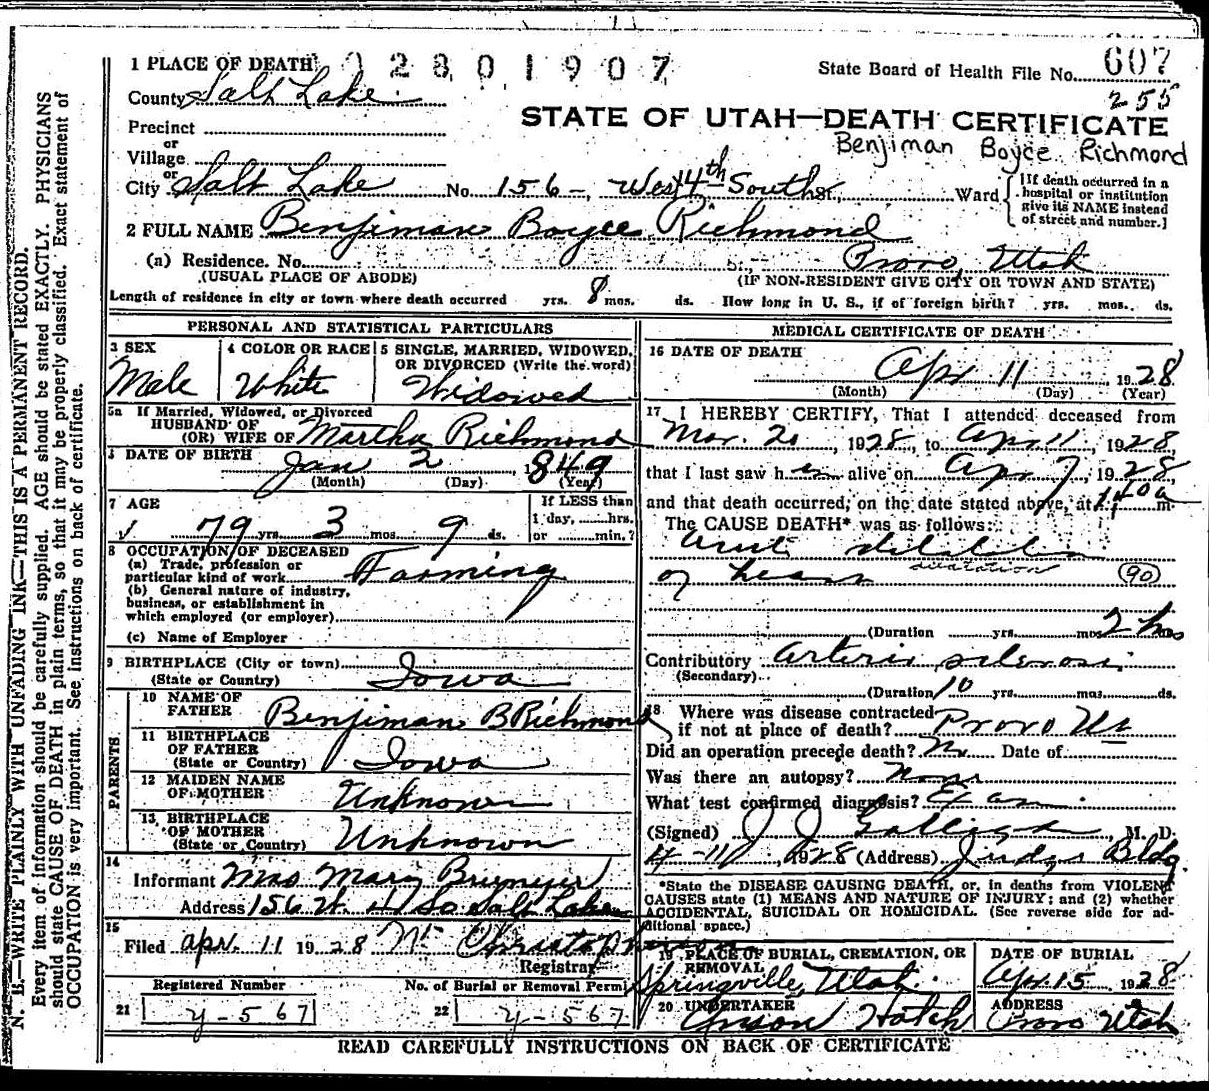 1 PLACE OF DEATH 02801907
State Board of Health File No. 607
County Salt Lake
255
STATE OF UTAH—DEATH CERTIFICATE
Precinct
or
Village
Benjiman Boyce Richmond
or
City Salt Lake No. 156 - West 4th South St., Ward [If death occurred in a hospital or institution give its NAME instead of street and number.]
2 FULL NAME Benjiman Boyce Richmond
(a) Residence. No. Provo, Utah
(USUAL PLACE OF ABODE) (IF NON-RESIDENT GIVE CITY OR TOWN AND STATE)
Length of residence in city or town where death occurred yrs. 8 mos. ds. How long in U. S., if of foreign birth? yrs. mos. ds.
PERSONAL AND STATISTICAL PARTICULARS
3 SEX 4 COLOR OR RACE 5 SINGLE, MARRIED, WIDOWED, OR DIVORCED (Write the word)
Male White Widowed
5a If Married, Widowed, or Divorced
HUSBAND OF
(OR) WIFE OF Martha Richmond
DATE OF BIRTH Jan 2, 1849
(Month) (Day) (Year)
7 AGE If LESS than
1 day, hrs.
79 yrs. 3 mos. 9 ds. or min.?
8 OCCUPATION OF DECEASED
(a) Trade, profession or
particular kind of work Farming
(b) General nature of industry,
business, or establishment in
which employed (or employer)
(c) Name of Employer
9 BIRTHPLACE (City or town)
(State or Country) Iowa
PARENTS
10 NAME OF
FATHER Benjiman B Richmond
11 BIRTHPLACE
OF FATHER
(State or Country) Iowa
12 MAIDEN NAME
OF MOTHER Unknown
13 BIRTHPLACE
OF MOTHER
(State or Country) Unknown
14
Informant Mrs Mary
Address 156 W. 4 So Salt Lake
15
Filed Apr. 11 1928
Registrar
Registered Number No. of Burial or Removal Permit
21 y-567 22 y-567
MEDICAL CERTIFICATE OF DEATH
16 DATE OF DEATH
Apr 11 1928
(Month) (Day) (Year)
17 I HEREBY CERTIFY, That I attended deceased from
Mar. 20, 1928, to Apr 11, 1928
that I last saw him alive on Apr 7, 1928
and that death occurred, on the date stated above, at 1:40 a m.
The CAUSE DEATH* was as follows:
acute dilatation
of heart dilatation (90)
(Duration yrs. mos. 2 hrs
Contributory Arterio sclerosis
(Secondary)
(Duration 10 yrs. mos. ds.
18 Where was disease contracted
if not at place of death? Provo Ut
Did an operation precede death? No Date of
Was there an autopsy? None
What test confirmed diagnosis? Exam.
(Signed) J J Galligan, M. D.
4-11, 1928 (Address) Judge Bldg.
*State the DISEASE CAUSING DEATH, or, in deaths from VIOLENT
CAUSES state (1) MEANS AND NATURE OF INJURY; and (2) whether
ACCIDENTAL, SUICIDAL OR HOMICIDAL. (See reverse side for additional space.)
19 PLACE OF BURIAL, CREMATION, OR REMOVAL DATE OF BURIAL
Springville, Utah. Apr. 15 1928
20 UNDERTAKER ADDRESS
Anson Hatch Provo Utah
READ CAREFULLY INSTRUCTIONS ON BACK OF CERTIFICATE
N. B.—WRITE PLAINLY WITH UNFADING INK—THIS IS A PERMANENT RECORD.
Every item of information should be carefully supplied. AGE should be stated EXACTLY. PHYSICIANS
should state CAUSE OF DEATH in plain terms, so that it may be properly classified. Exact statement of
OCCUPATION is very important. See instructions on back of certificate.